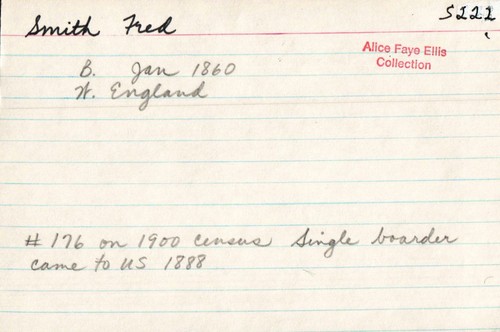 Smith Fred
S222
Alice Faye Ellis
Collection
B. Jan 1860
N. England
# 176 on 1900 census Single boarder
came to US 1888